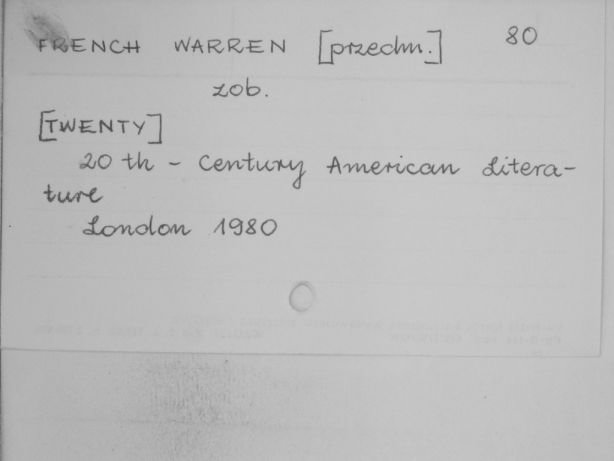 FRENCH WARREN [przedm.] 80
zob.
[TWENTY]
20 th - Century American Litera-
ture
London 1980